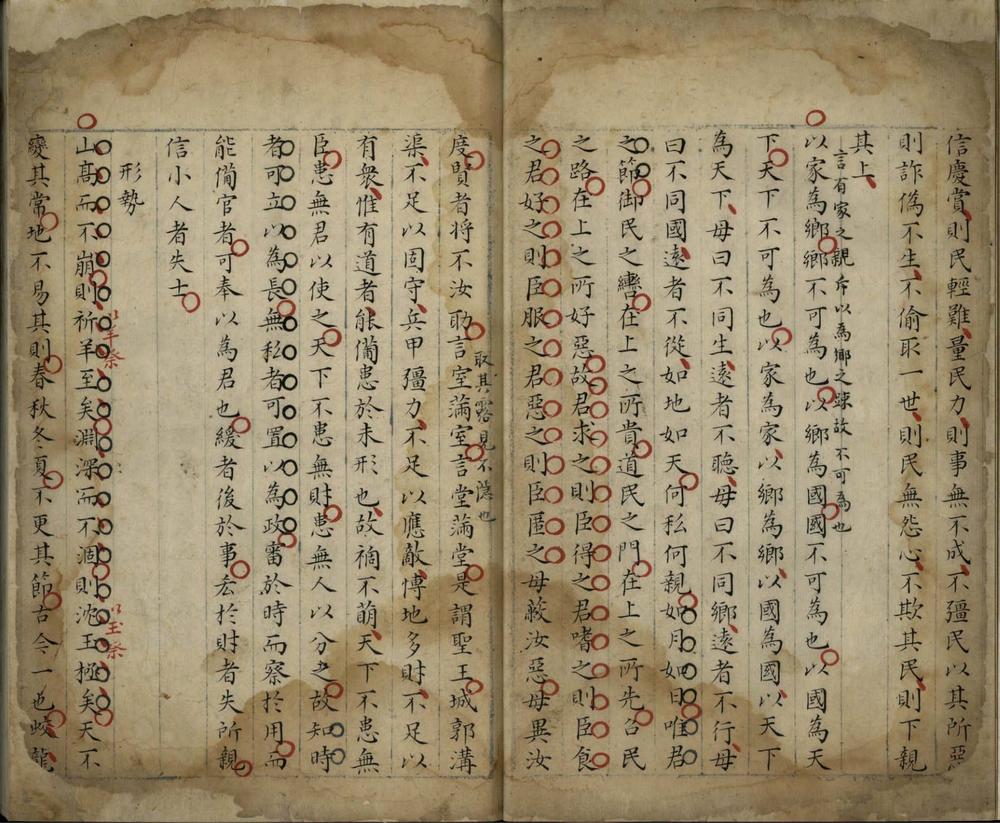 信慶賞則民輕難量民力則事無不成不彊民以其所惡
則詐偽不生不偷取一世則民無怨心不欺其民則下親
其上
言有家之親斥以為鄉之踈故不可為也
以家為鄉鄉不可為也以鄉為國國不可為也以國為天
下天下不可為也以家為家以鄉為鄉以國為國以天下
為天下毋曰不同生遠者不聽毋曰不同鄉遠者不行毋
曰不同國遠者不從如地如天何私何親如月如日唯君
之節御民之轡在上之所貴道民之門在上之所先召民
之路在上之所好惡故君求之則臣得之君嗜之則臣食
之君好之則臣服之君惡之則臣匿之毋蔽汝惡毋異汝
度賢者将不汝助言室蒲室言堂蒲堂是謂聖王城郭溝
取其露見不隱也
渠不足以固守兵甲彊力不足以應敵博地多財不足以
有衆惟有道者能備患於未形也故禍不萌天下不患無
臣患無君以使之天下不患無財患無人以分之故知時
者可立以為長無私者可置以為政審於時而察於用而
能備官者可奉以為君也緩者後於事㳟於財者失所親
信小人者失士
形勢
以羊祭
以玉祭
山髙而不崩則祈羊至矣淵深而不涸則沈玉極矣天不
變其常地不易其則春秋冬夏不更其節古今一也蛟龍